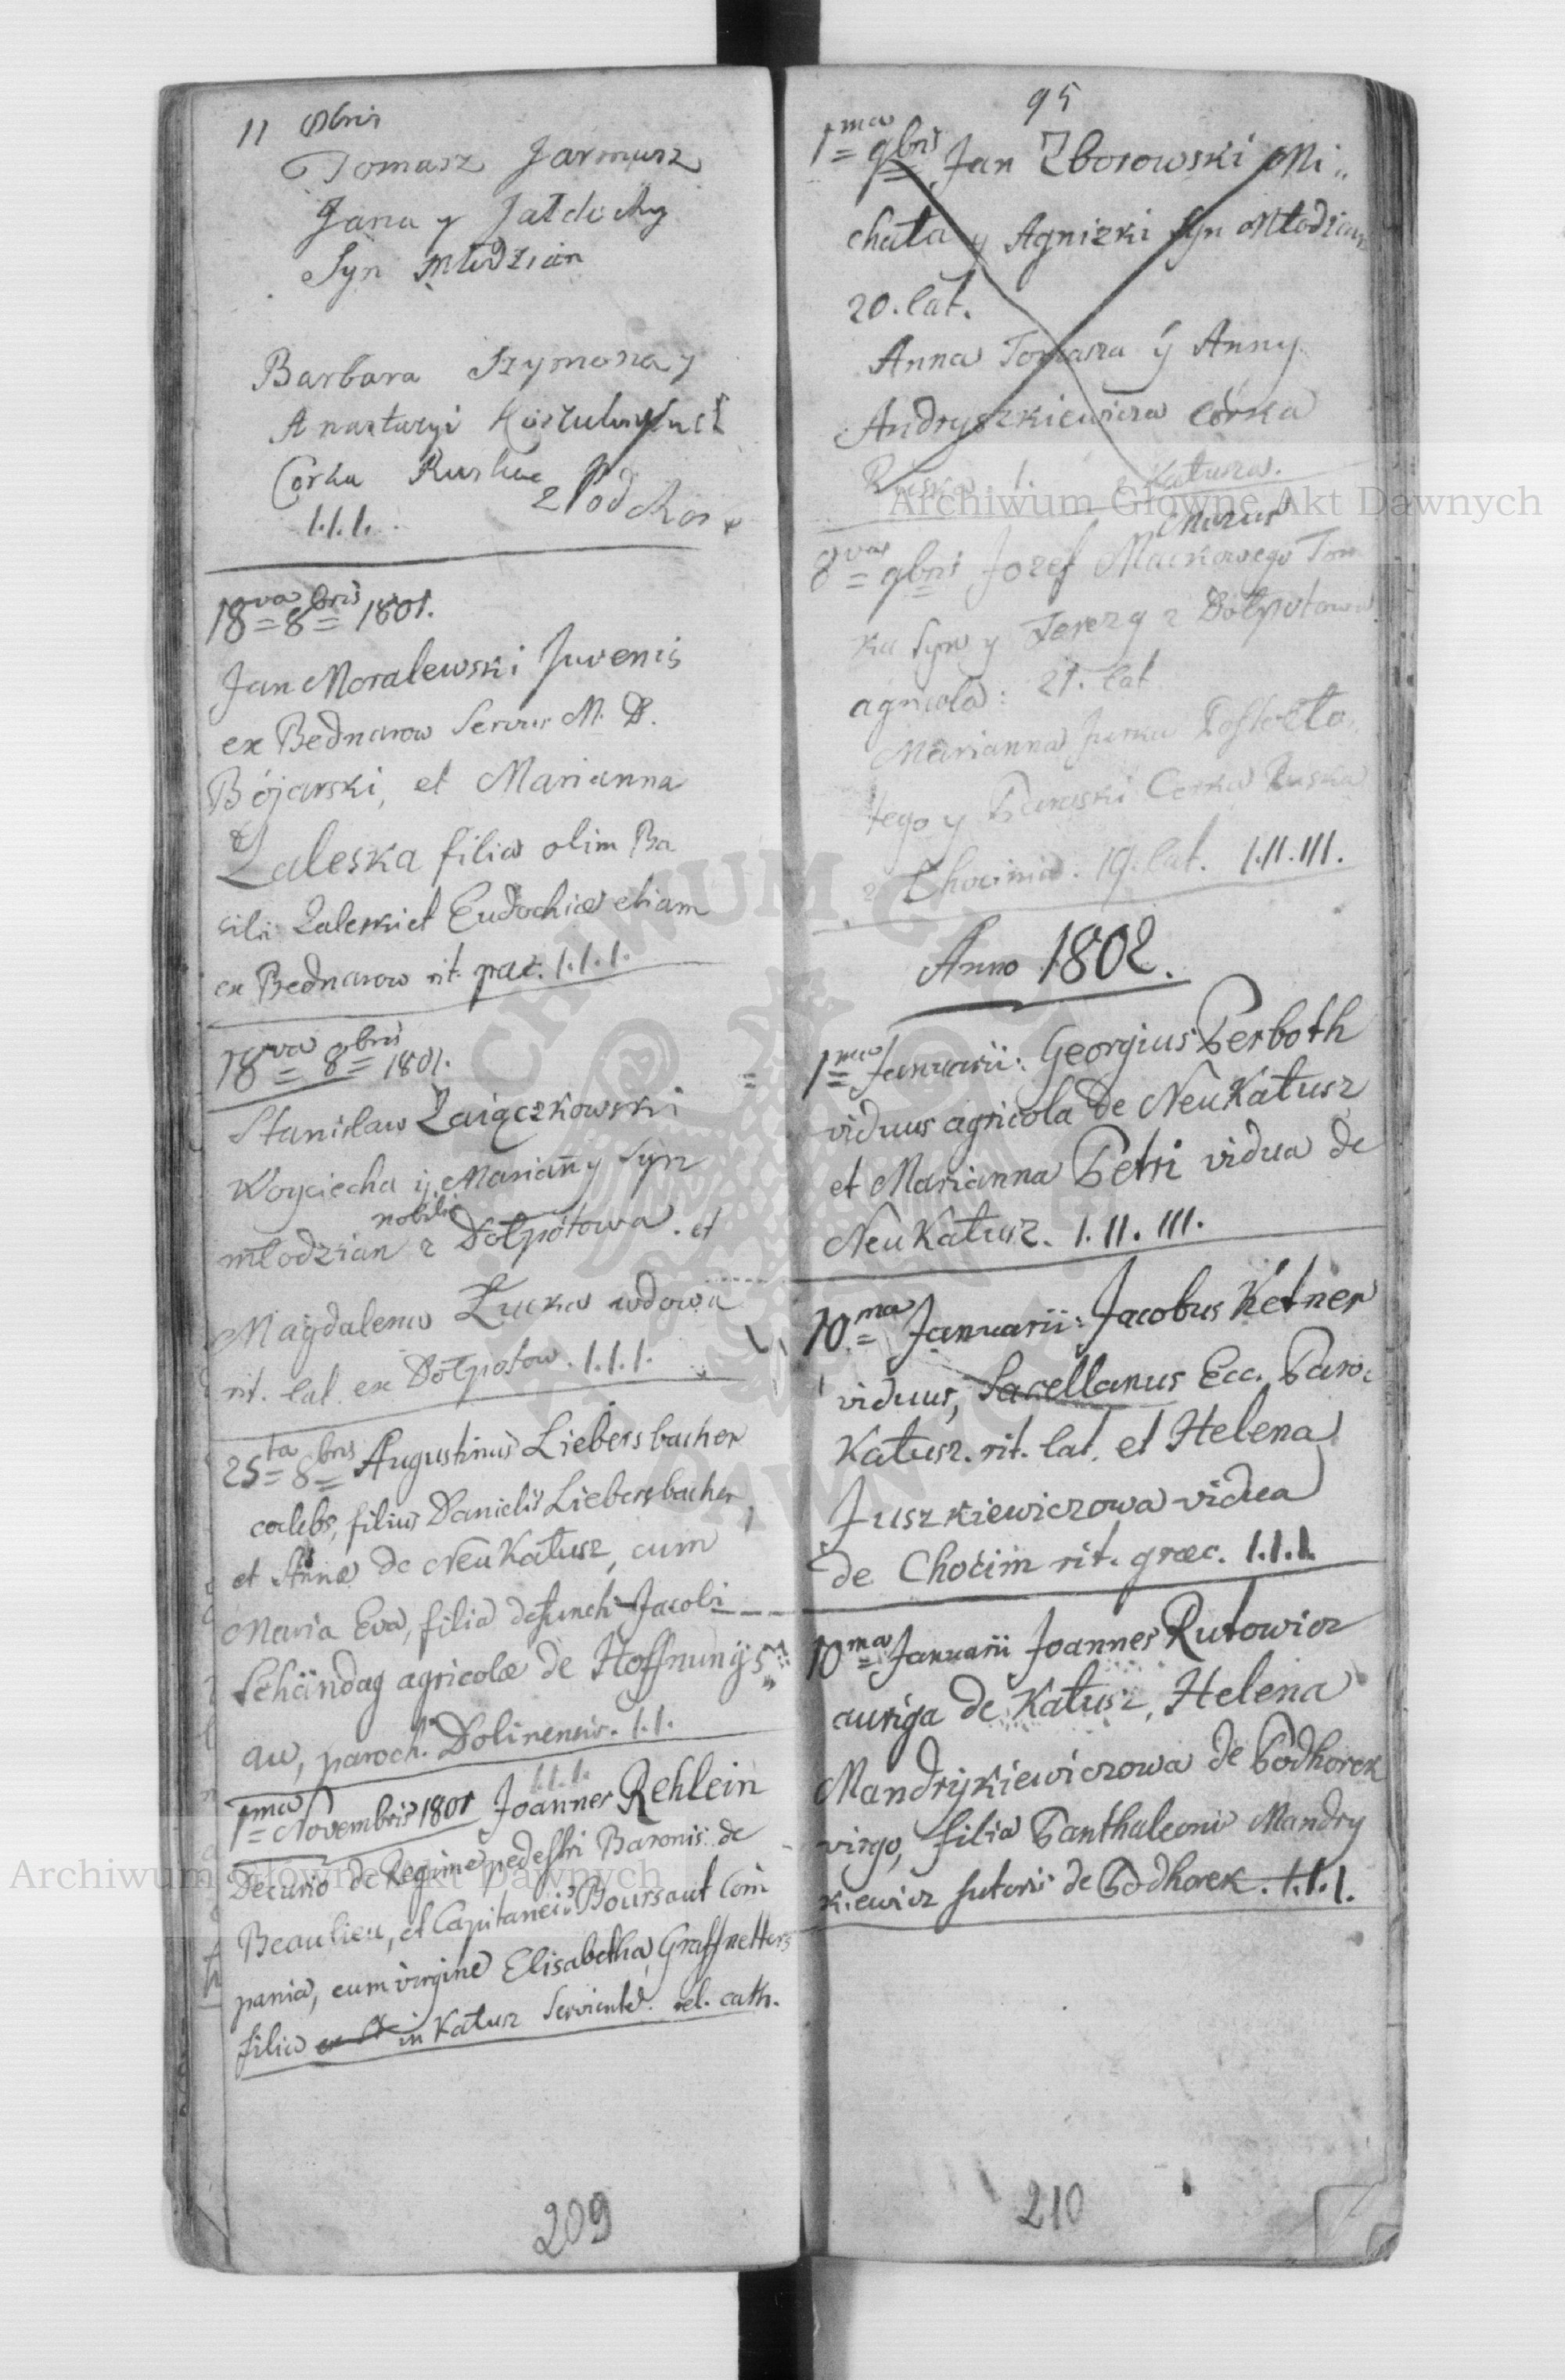 11 8bris
Tomasz Jarmusz
Jana y
Syn Młodzian
Barbara Szymona y
Anastazyi
Corka Ruska
z Podhor
1.1.1.
18va 8bris 1801.
Jan Moralewski Juvenis
ex Bednarow Servus M. D.
Bojarski, et Marianna
Zaleska filia olim Ba
silii Zaleski et Eudochiæ etiam
ex Bednarow rit. græc. 1.1.1.
18va 8bris 1801.
Stanisław Zaiączkowski
Woyciecha ÿ Mariañy Syn
nobilis
młodzian z Dołpotowa. et
Magdalena Łucka wdowa
rit. lat. ex Dołpotow. 1.1.1.
25ta 8bris Augustinus Liebersbacher
cœlebs, filius Danielis Liebersbacher,
et Annæ de NeuKałusz, cum
Maria Eva, filia defuncti Jacobi
Schändag agricolæ de Hoffnungs„
au, paroch. Dolinensis. 1.1.
1.1.1.
1ma Novembris 1801 Joannes Rehlein
Decurio de Regime pedestri Baronis de
Beaulieu, et Capitanei Boursaut Com
pania, cum virgine Elisabetha, Graffnetters
filia in Kałusz Serviente. rel. cath.
209
95
1ma 9bris Jan Zborowski Mi„
chała y Agnizki Syn Młodzian
20. lat.
Anna Tomasza ÿ Anny
Andryszkiewicza córka
Ruska. 1. z Kałusza.
Mazur
8va 9bris Jozef Mackowego Tom
ka Syn y Terezy z Dołpotowa
agricola: 21. lat
Marianna Jurka
tego y Paraski Corka Ruska
z Chocinia. 19. lat. 1.11.111.
Anno 1802.
1ma Januarii: Georgius Perboth
viduus agricola de NeuKałusz
et Marianna Petri vidua de
NeuKałusz. 1.11.111.
10ma Januarii: Jacobus Ketner
viduus, Sacellanus Ecc. Paro.
Kałusz. rit. lat. et Helena
Juszkiewiczowa vidua
de Chocim rit. græc. 1.1.1.
10ma Januarii Joannes Rutowicz
auriga de Kałusz, Helena
Mandrÿkiewiczowa de Podhorek
virgo, filia Panthaleonis Mandry
kiewicz sutoris de Podhorek. 1.1.1.
210
Archiwum Główne Akt Dawnych
Archiwum Główne Akt Dawnych
ARCHIWUM GŁÓWNE AKT DAWNYCH